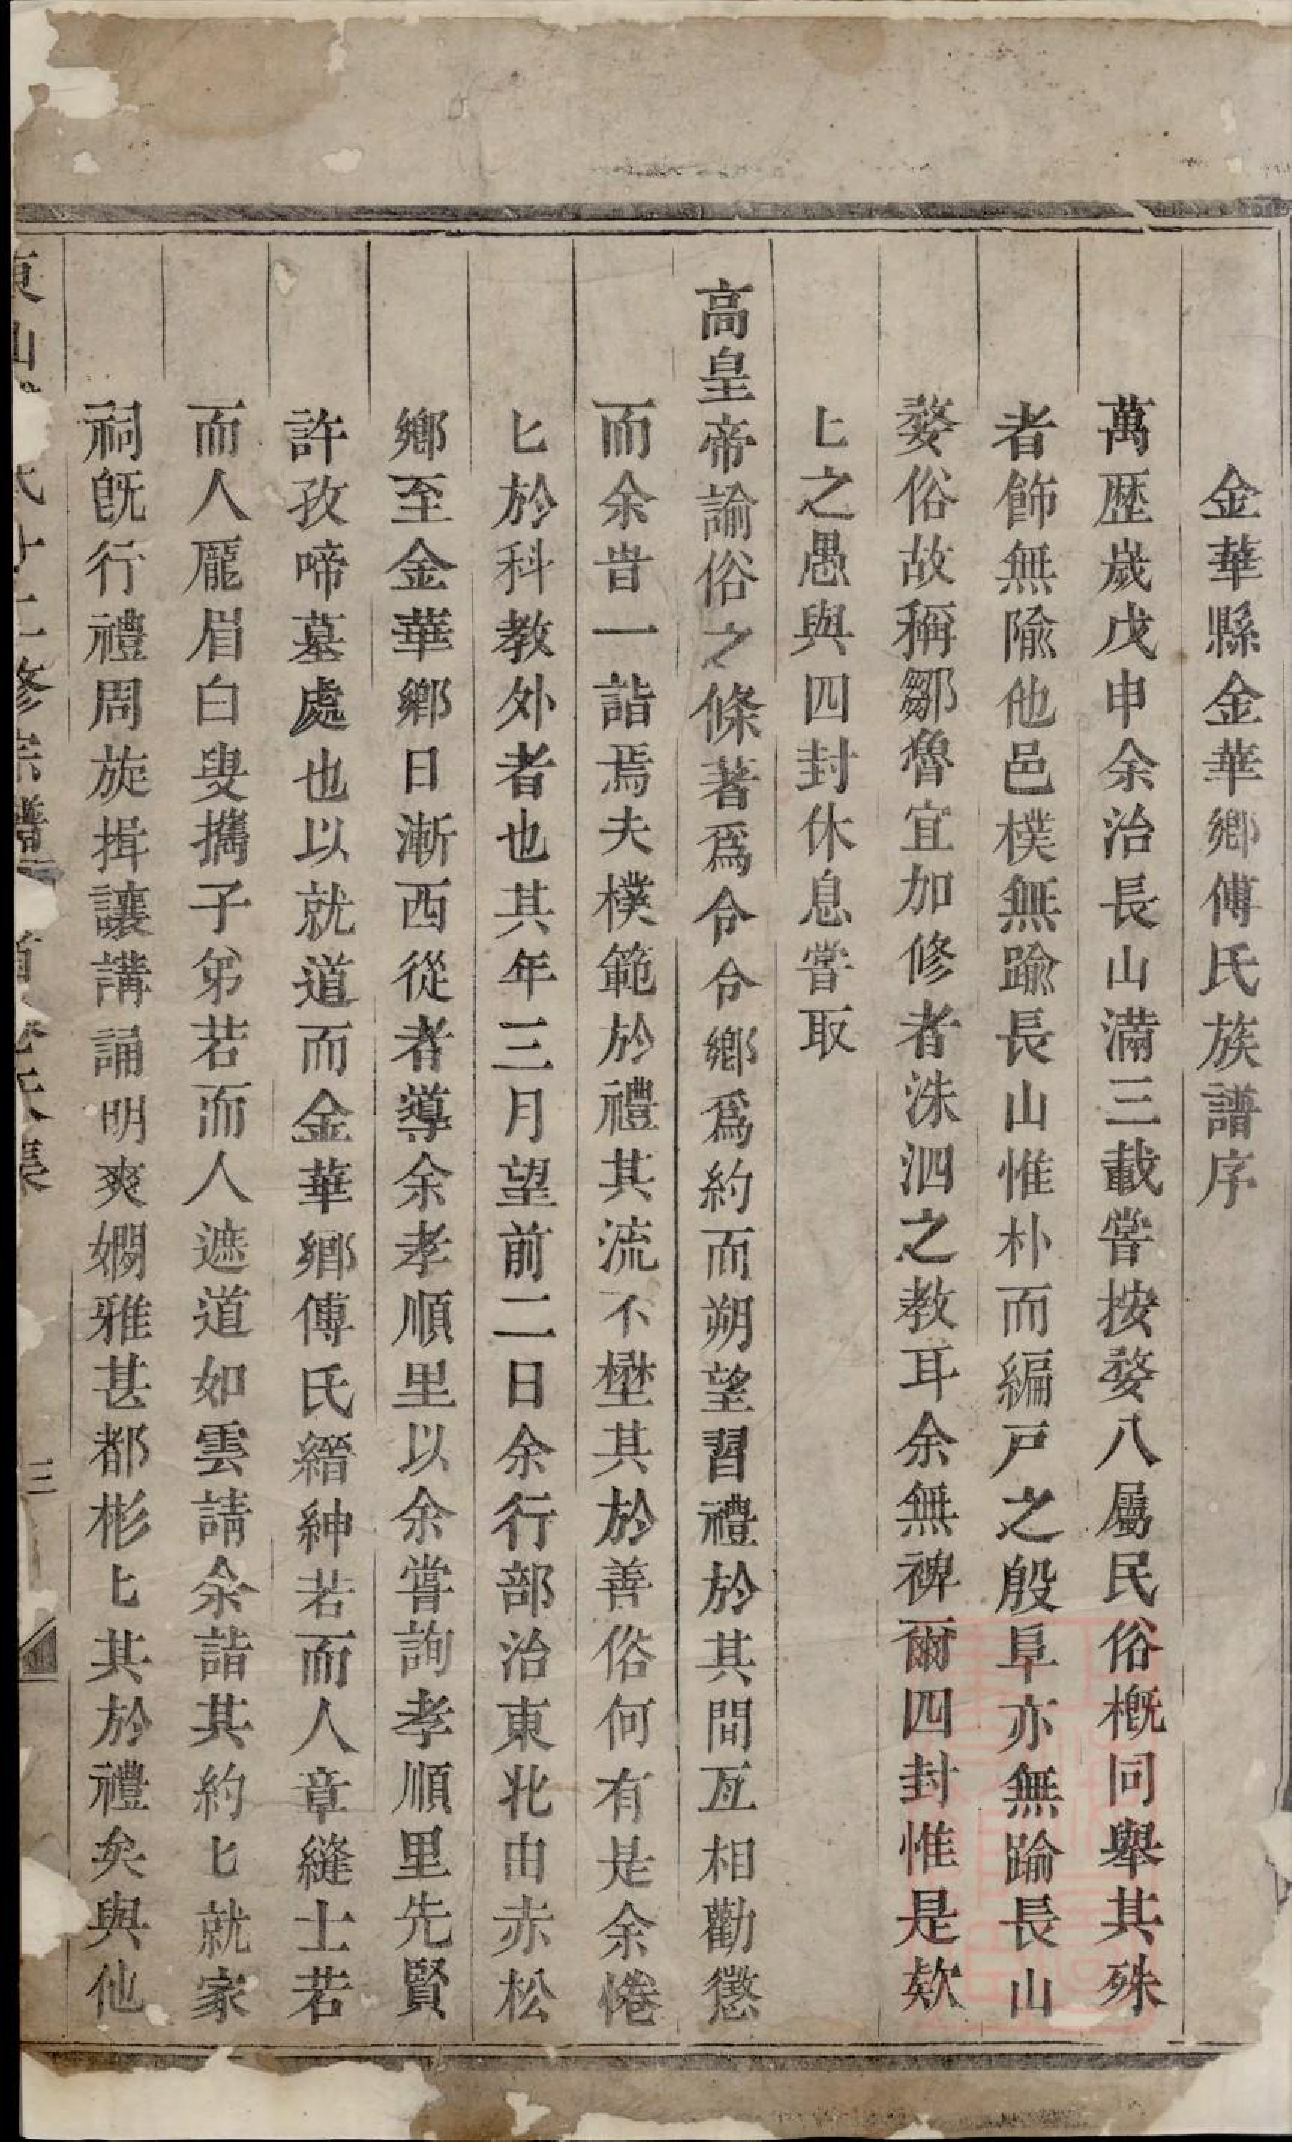 金華縣金華鄉傅氏族譜序
萬歷歲戊申余治長山滿三載嘗按婺八屬民俗概同舉其殊
者飾無隃他邑樸無踰長山惟朴而編戸之殷阜亦無踰長山
婺俗故稱鄒魯宜加修者洙泗之教耳余無裨爾四封惟是欵
匕之愚與四封休息嘗取
高皇帝諭俗之條著爲令令鄉爲約而朔望習禮於其間互相勸懲
而余旹一詣焉夫樸範於禮其流不壄其於善俗何有是余惓
匕於科教外者也其年三月望前二日余行部治東北由赤松
鄉至金華鄉日漸西從者導余孝順里以余嘗詢孝順里先賢
許孜啼墓處也以就道而金華鄉傅氏縉紳若而人章縫士若
而人厖眉白叟攜子弟若而人遮道如雲請余詣其約匕就家
祠旣行禮周旋揖讓講誦明爽嫺雅甚都彬匕其於禮矣與他
東山氏廿二修宗譜 首 三